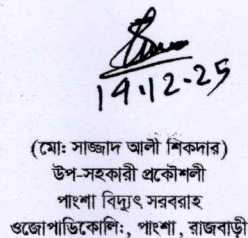 14.12-25
(মো: সাজ্জাদ আলী শিকদার)
উপ-সহকারী প্রকৌশলী
পাংশা বিদ্যুৎ সরবরাহ
ওজোপাডিকোলি:, পাংশা, রাজবাড়ী